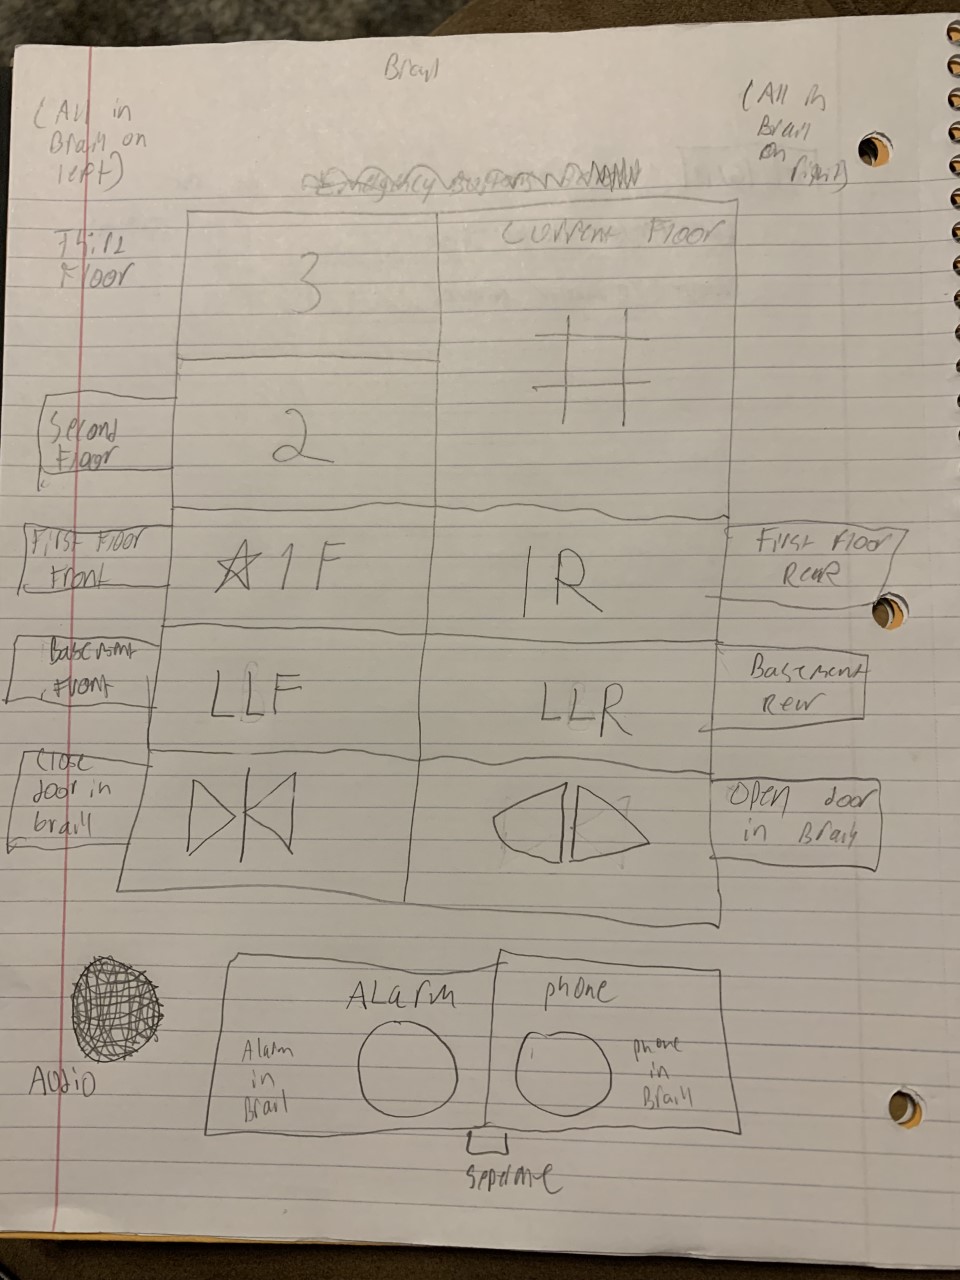 Brayl
(All in
Braill on
left)
(All in
Braill
on
Right)
Floor
3
Current Floor
#
Second
Floor
2
First Floor
Front
☆1F
1R
First Floor
Rear
Basement
Front
LLF
LLR
Basement
Rear
Close
door in
braill
Open door
in Braill
Audio
ALarm
Alarm
in
Brail
phone
phone
in
Braill